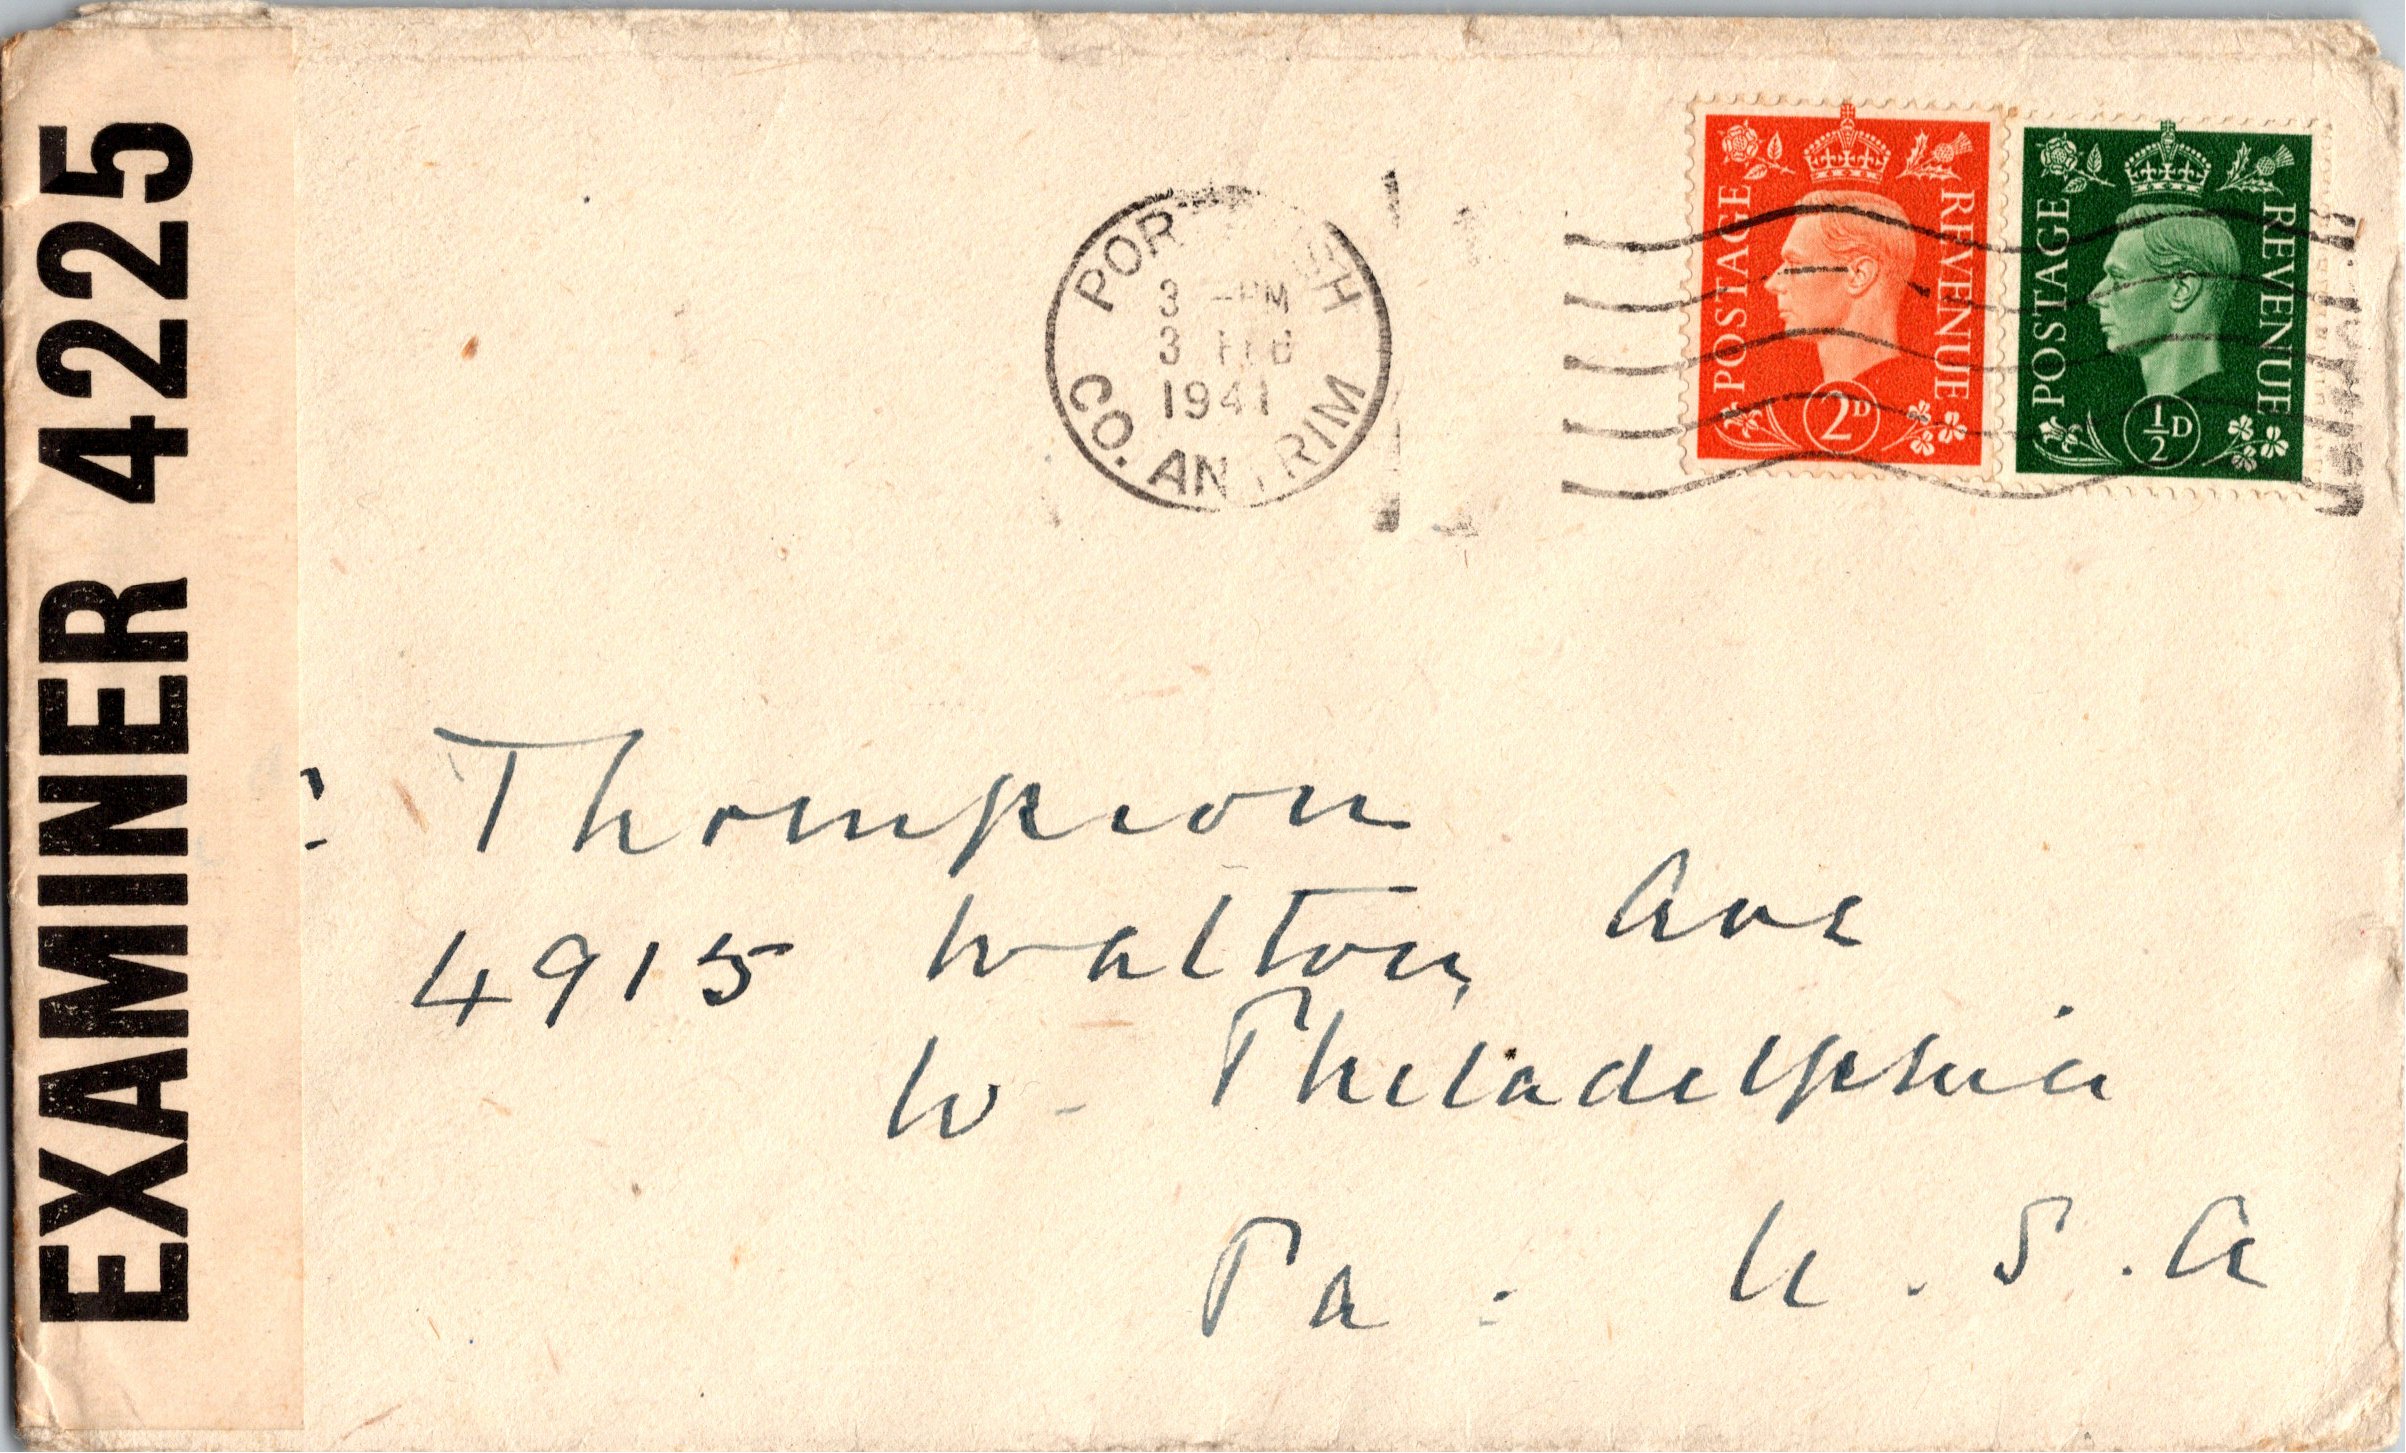 EXAMINER 4225
3 - PM
3 FEB
1941
CO. ANTRIM
POSTAGE REVENUE
2D
POSTAGE REVENUE
½D
Thompson
4915 Walton Ave
W - Philadelphia
Pa : U . S . A